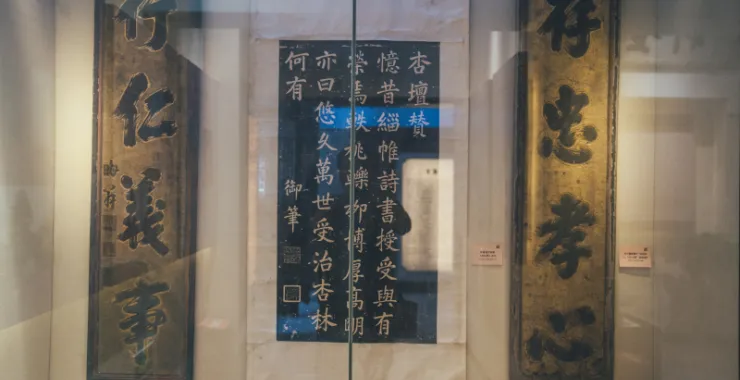 存忠孝心
杏壇賛
憶昔緇帷詩書授受與有
榮焉軼桃轢柳博厚高明
亦曰悠久萬世受治杏林
何有
御筆
行仁義事